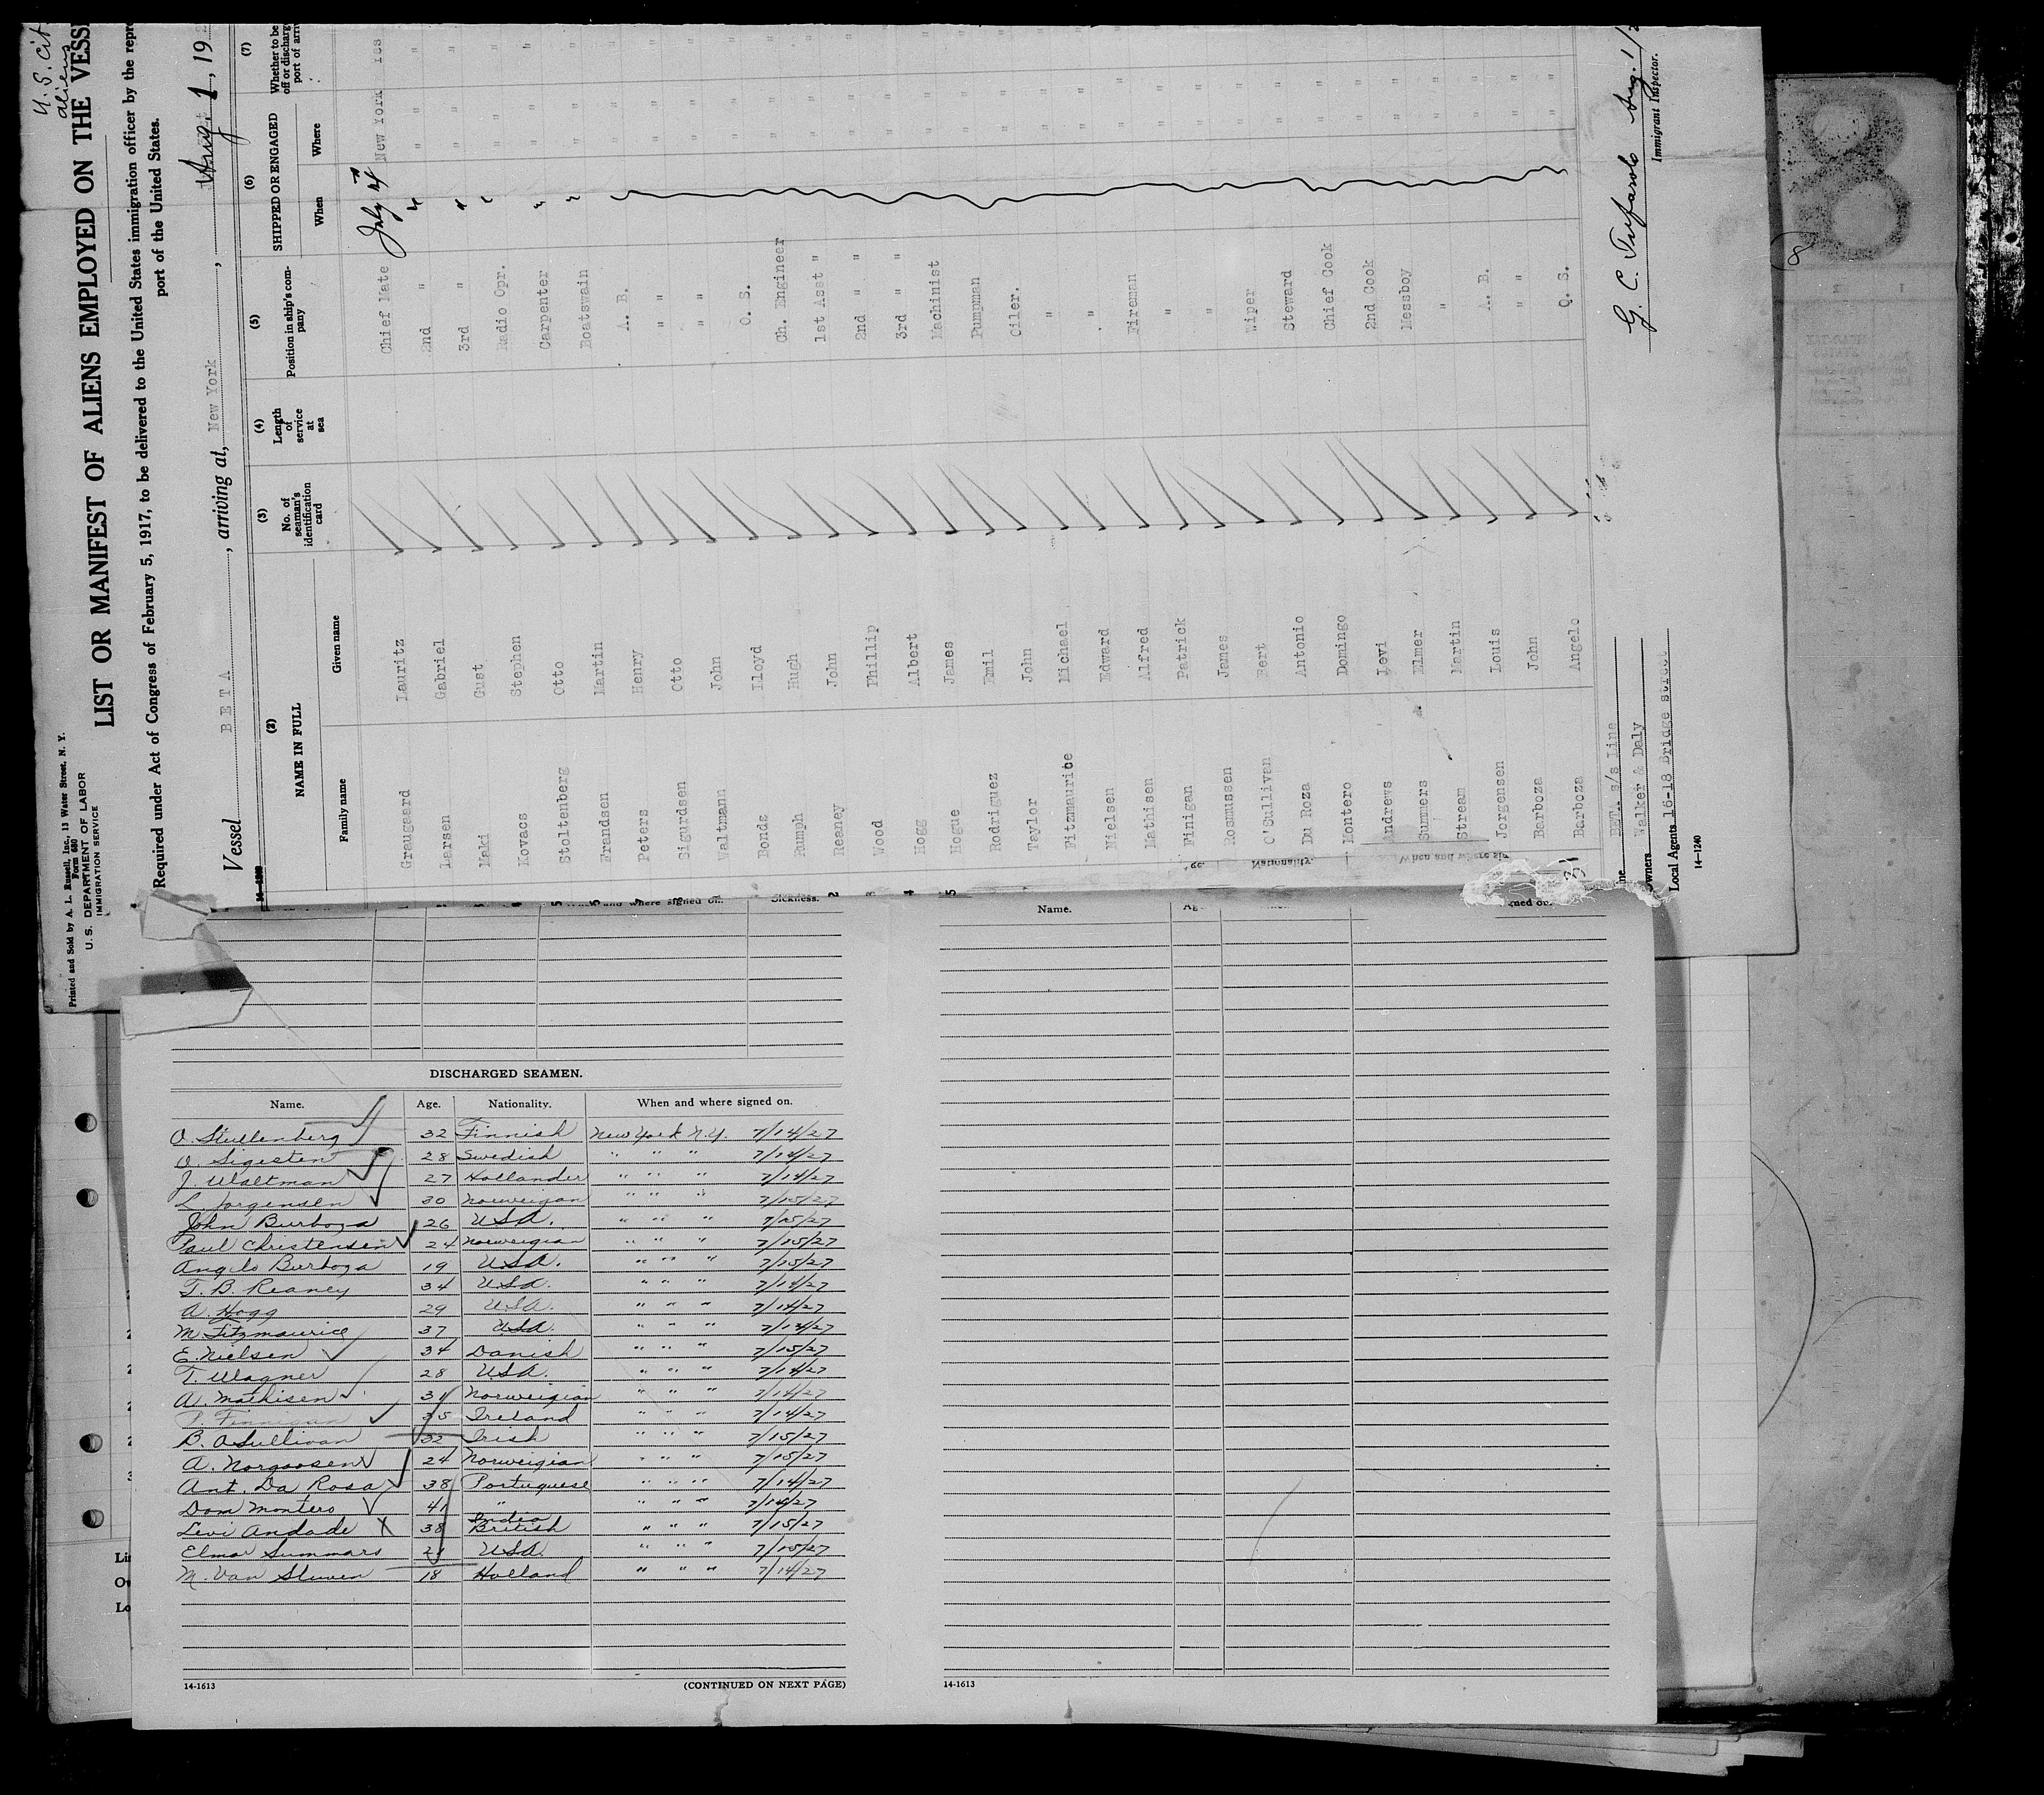 U.S. Cit
aliens
Printed and Sold by A. L. Russell, Inc., 13 Water Street, N. Y.
Form 680
U. S. DEPARTMENT OF LABOR
IMMIGRATION SERVICE
LIST OR MANIFEST OF ALIENS EMPLOYED ON THE VESS
Required under Act of Congress of February 5, 1917, to be delivered to the United States immigration officer by the repr
port of the United States.
Vessel BETA, arriving at, New York, Aug. 1, 19
(2) (3) (4) (5) (6) (7)
NAME IN FULL No. of seaman's identification card Length of service at sea Position in ship's company SHIPPED OR ENGAGED Whether to be
off or discharg
port of arriv
Family name Given name When Where
Graugaard Lauritz Chief Mate July 14 New York Yes
Larsen Gabriel 2nd " " " "
Maki Gust 3rd " " " "
Kovacs Stephen Radio Opr. " " "
Stoltenberg Otto Carpenter " " "
Frandsen Martin Boatswain " " "
Peters Henry A. B. " "
Sigurdsen Otto " " "
Waltmann John " " "
Bondz Lloyd O. S. " "
Rumph Hugh Ch. Engineer " "
Reaney John 1st Asst " " "
Wood Phillip 2nd " " " "
Hogg Albert 3rd " " " "
Hogue James Machinist " "
Rodriguez Emil Pumpman " "
Taylor John Oiler. " "
Fitzmaurice Michael " " "
Nielsen Edward " " "
Mathisen Alfred Fireman " "
Finigan Patrick " " "
Rosmussen James " " "
O'Sullivan Bert Wiper " "
Du Roza Antonio Steward " "
Montero Domingo Chief Cook " "
Andrews Levi 2nd Cook " "
Summers Elmer Messboy " "
Stream Martin " " "
Jorgensen Louis A. B. " "
Barboza John " " " "
Barboza Angelo O. S. " "
31
ne BETA s/s Line
Owners Walker & Daly
Local Agents 16-18 Bridge street
14-1240
G. C. Tufarolo Aug. 1/2
Immigrant Inspector.
and where signed on. Sickness.
Name.
DISCHARGED SEAMEN.
Name. Age. Nationality. When and where signed on.
O. Stullenberg 32 Finnish New York N.Y. 7/14/27
O. Sigesten 28 Swedish " " " 7/14/27
J. Waltman 27 Hollander " " 7/14/27
L. Jorgensen 30 Norweigan " " " 7/15/27
John Burboza 26 USA. " " " 7/15/27
Paul Christensen 24 Norweigian " " " 7/15/27
Angelo Burboza 19 USA. " " " 7/15/27
T. B. Reaney 34 USA. " " " 7/14/27
A. Hogg 29 USA. " " " 7/14/27
M Fitzmaurice 37 USA. " " " 7/14/27
E. Nielsen 34 Danish " " " 7/15/27
T. Wagner 28 USA. " " " 7/14/27
A. Mathisen 31 Norweigian " " " 7/14/27
P. Finnegan 35 Ireland " " " 7/14/27
B. OSullivan 32 Irish " " " 7/15/27
A. Norgaosen 24 Norweigian " " " 7/15/27
Ant. Da Rosa 38 Portuguese " " " 7/14/27
Dom Montero 41 " " " " 7/14/27
Levi Andade X 38 India British " " " 7/15/27
Elmar Summars 21 USA. " " " 7/15/27
M. Van Sluven 18 Holland " " " 7/14/27
14-1613 (CONTINUED ON NEXT PAGE) 14-1613